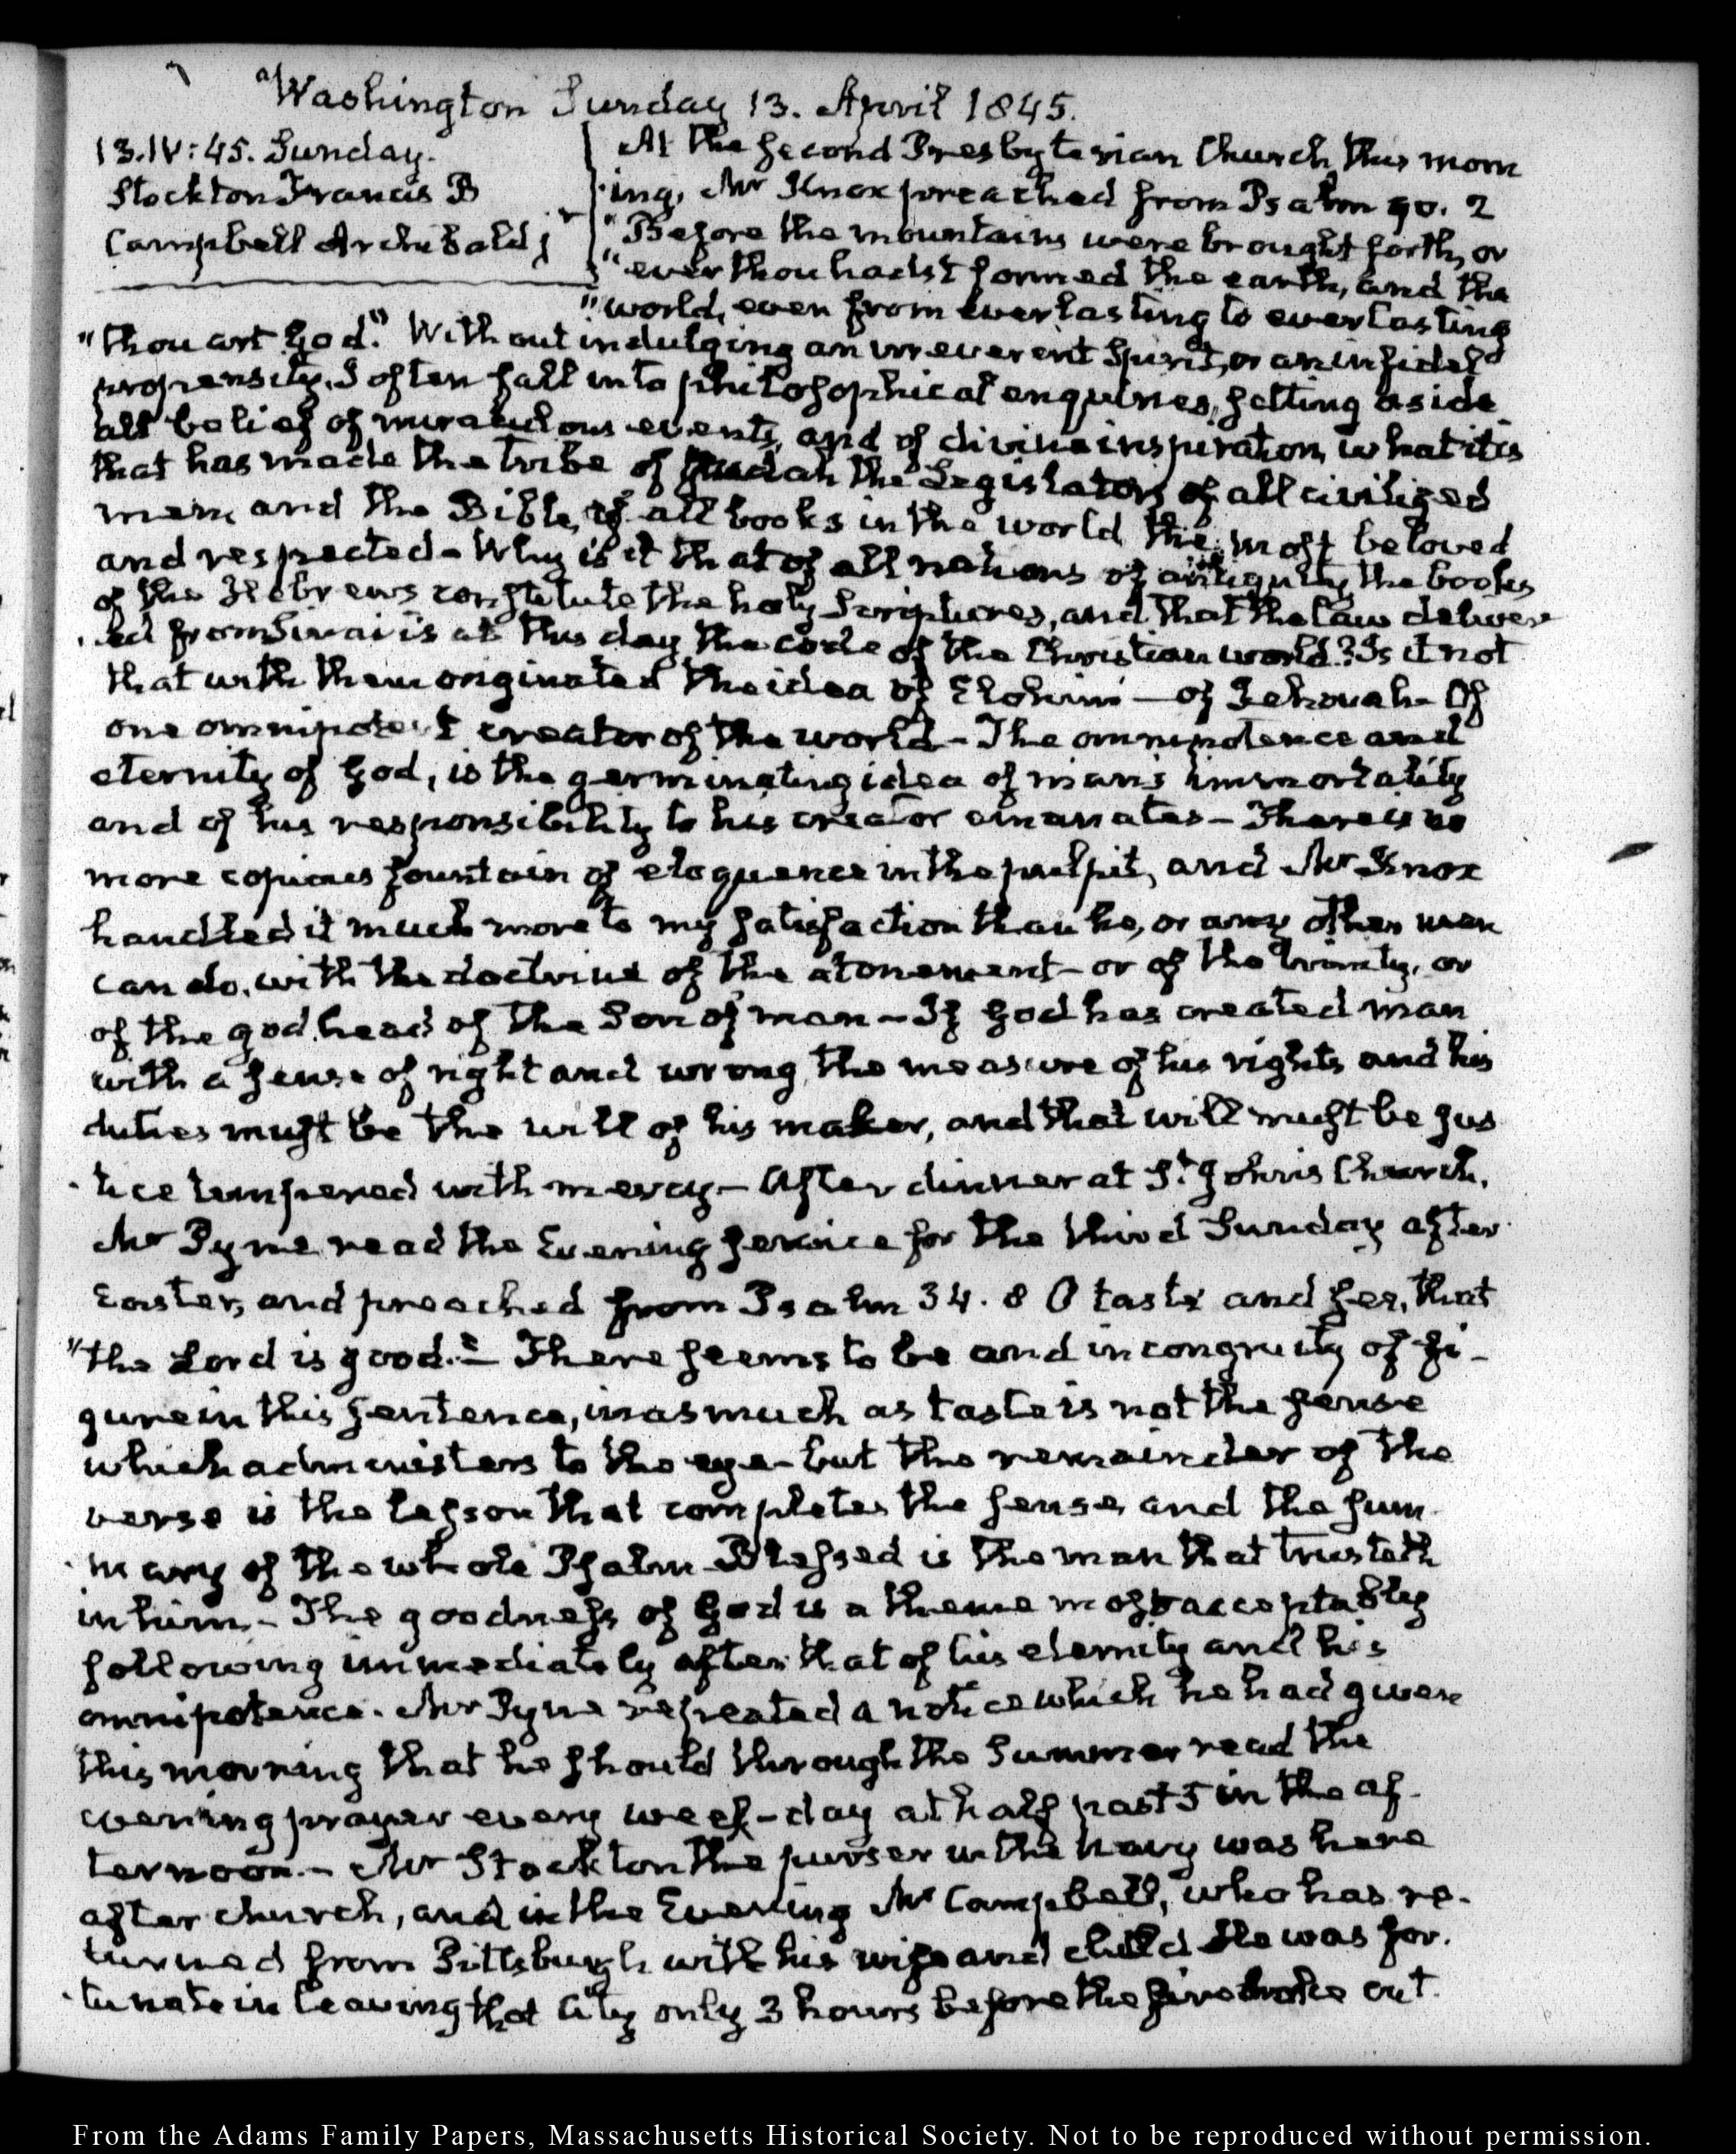 Washington Sunday 13. April 1845.
13.IV:45. Sunday.
Stockton Francis B
Campbell Archibald jr
At the Second Presbyterian Church this morn
ing, Mr Knox preached from Psalm 90. 2
"Before the mountains were brought forth, or
"ever thou hadst formed the earth, and the
"world, even from everlasting to everlasting
"thou art God." Without indulging an irreverent Spirit, or an infidel
propensity, I often fall into philosophical enquiries, setting aside
all belief of miraculous events, and of divine inspiration, what it is
that has made the tribe of Judah the Legislators of all civilized
men, and the Bible, of all books in the world the most beloved
and respected - Why is it that of all nations of antiquity, the books
of the Hebrews constitute the holy Scriptures, and that the law deliver
ed from Sinai is at this day the code of the Christian world? Is it not
that with them originated the idea of Elohim — of Jehovah - Of
one omnipotent creator of the world - The omnipotence and
eternity of God, is the germinating idea of man's immortality
and of his responsibility to his creator emanates - There is no
more copious fountain of eloquence in the pulpit, and Mr Knox
handled it much more to my satisfaction than he, or any other man
can do, with the doctrine of the atonement - or of the trinity, or
of the godhead of the Son of man - If God has created man
with a sense of right and wrong, the measure of his rights and his
duties must be the will of his maker, and that will must be jus
tice tempered with mercy - After dinner at St. John's Church,
Mr Pyne read the Evening service for the third Sunday after
Easter, and preached from Psalm 34. 8 O taste and see, that
"the Lord is good." - There seems to be and incongruity of fi-
gure in this sentence, inasmuch as taste is not the sense
which administers to the eye - but the remainder of the
verse is the lesson that completes the sense, and the sum
mary of the whole Psalm - Blessed is the man that trusteth
in him. - The goodness of God is a theme most acceptably
following immediately after that of his eternity and his
omnipotence. Mr Pyne repeated a notice which he had given
this morning that he should through the Summer read the
evening prayer every week-day at half past 5 in the af-
ternoon. - Mr Stockton the purser in the Navy was here
after church, and in the Evening Mr Campbell, who has re-
turned from Pittsburgh with his wife and child He was for-
tunate in leaving that City only 3 hours before the fire broke out.
From the Adams Family Papers, Massachusetts Historical Society. Not to be reproduced without permission.